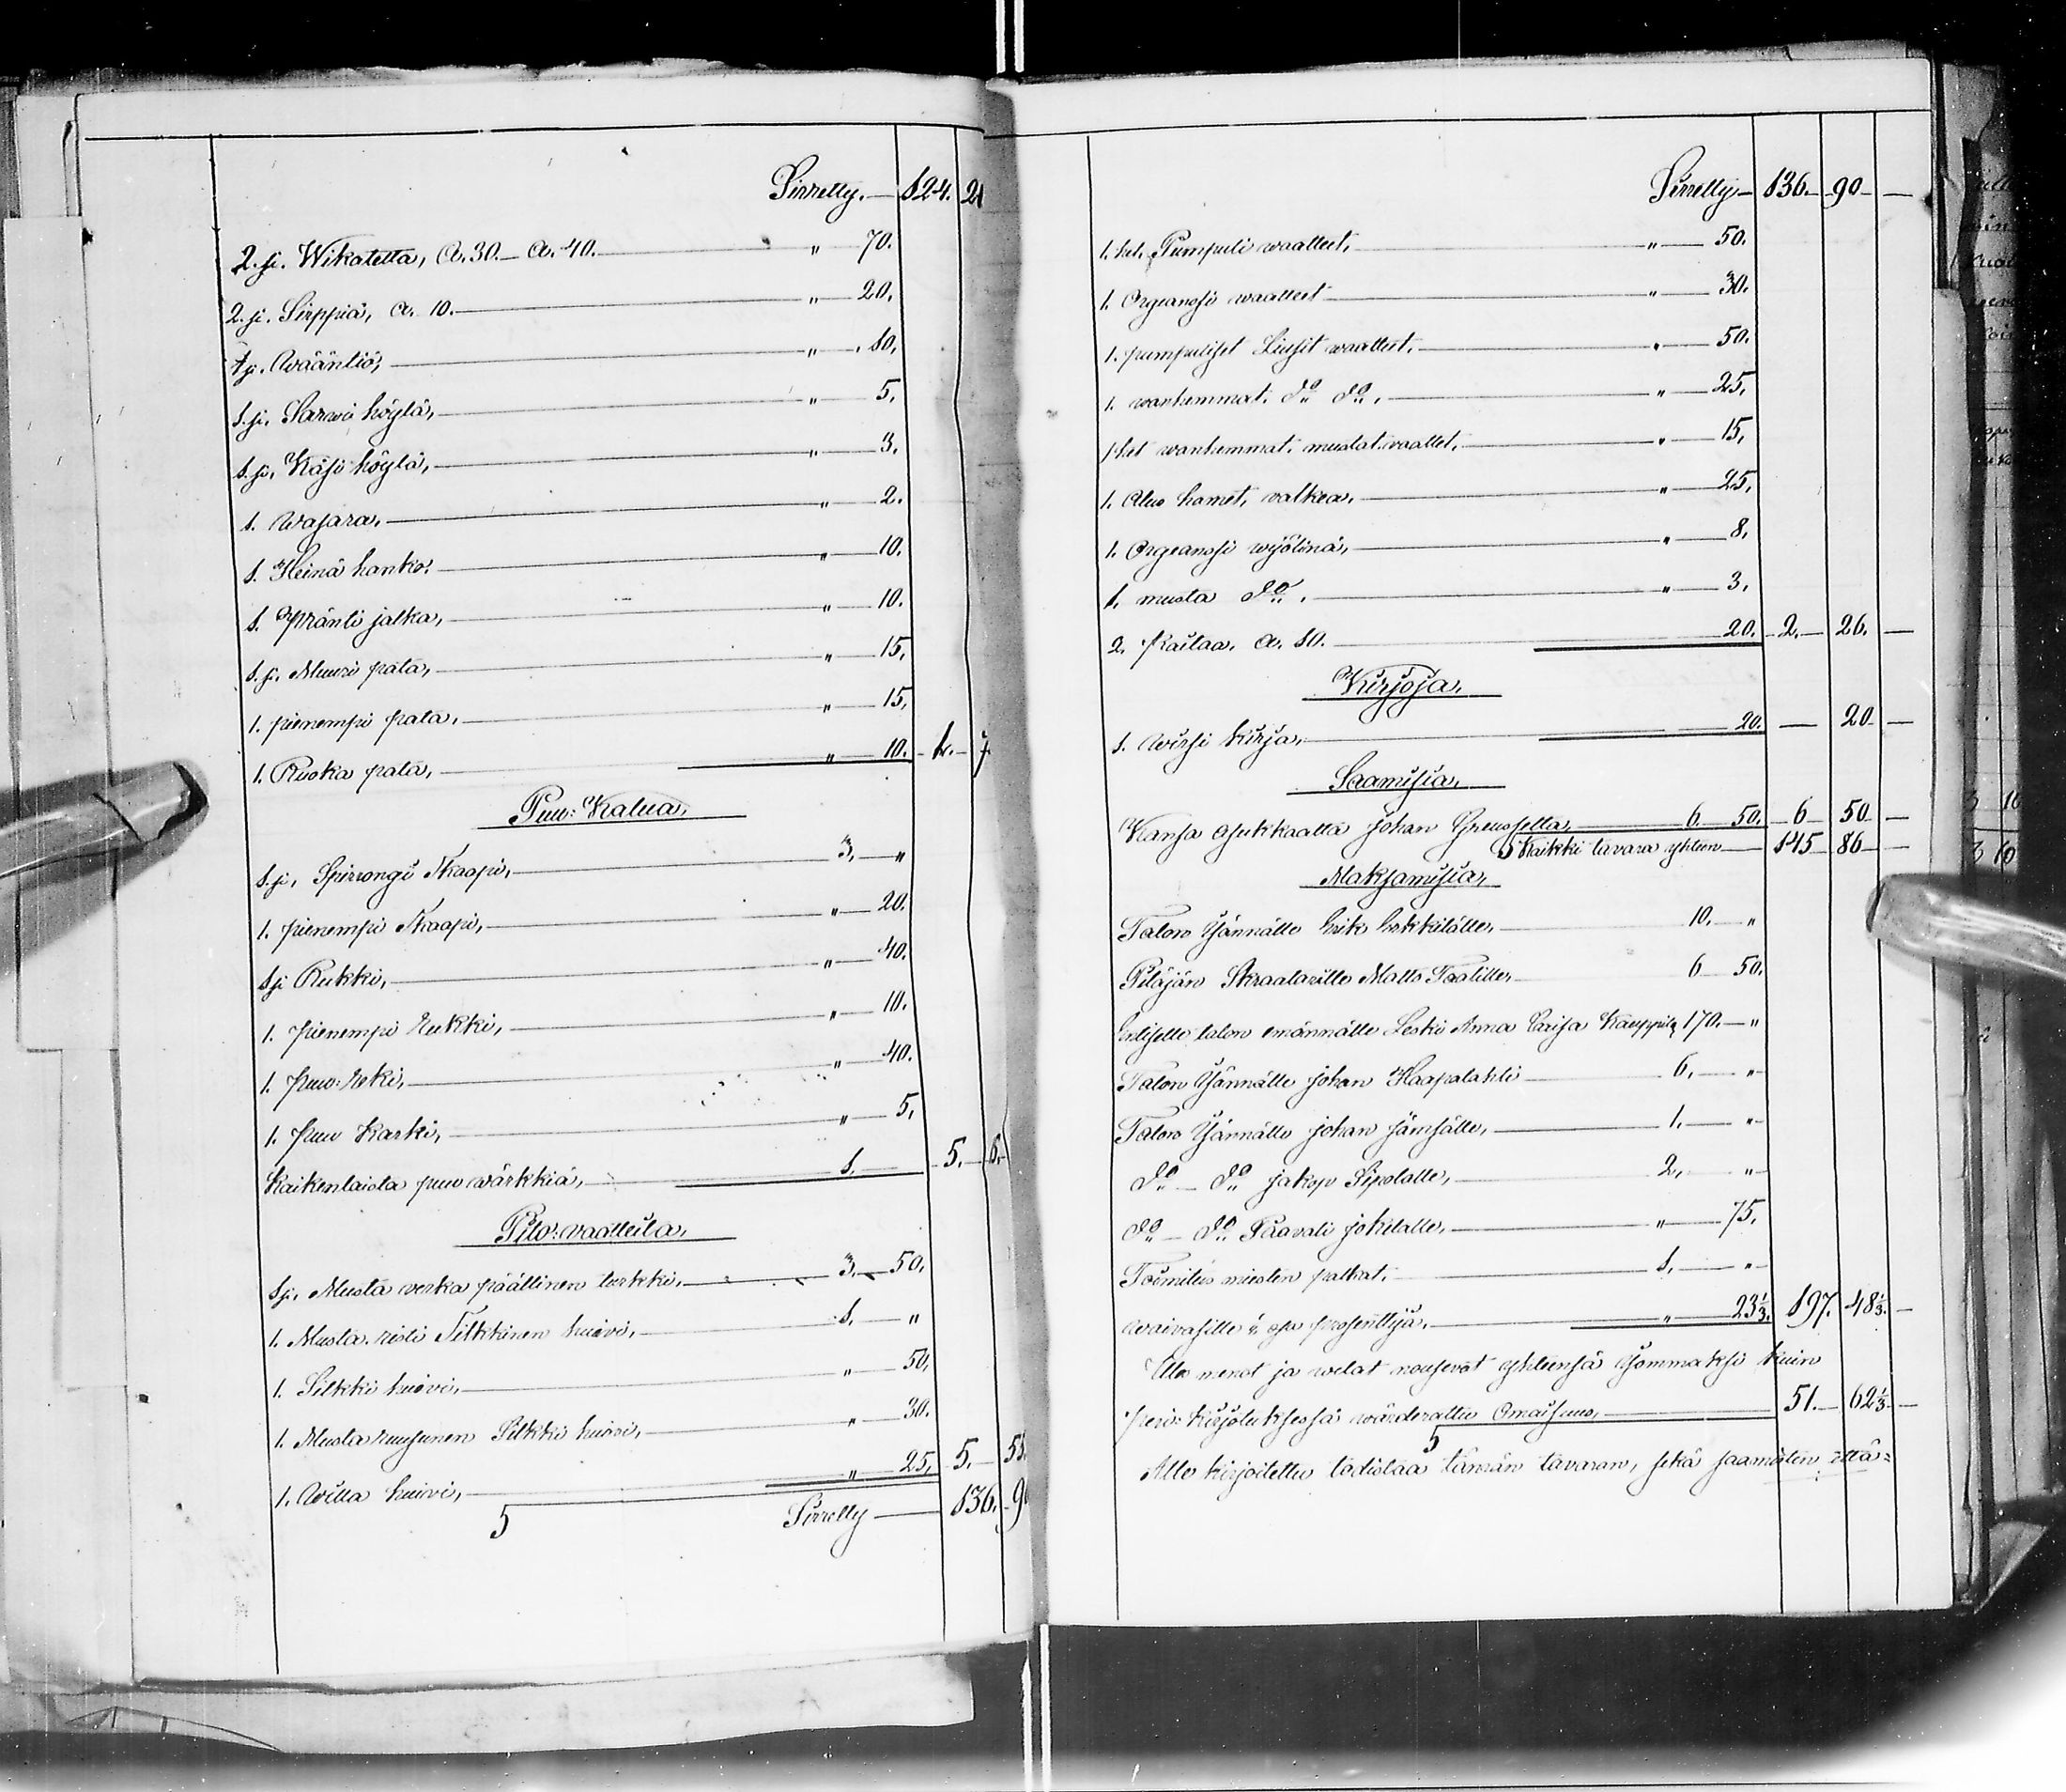 Siirretty. — 124. 2
2. st. Wikatetta, a. 30. — a. 40. — " — 70.
2. st. Sirppiä, a. 10. — " — 20.
1 st. Wääntiö, — " — 10.
1. st. Sarwi höylä, — " — 5.
1. st. Käsi höylä, — " — 3.
1. Wasara, — " — 2.
1. Heinä hanko. — " — 10.
1. Pränti jalka, — " — 10.
1. st. Muuri pata, — " — 15.
1. pienempi pata. — " — 15.
1. Ruoka pata, — " — 10.
Puu: Kalua.
1. st. Spirrongi Skaapi, — 3. — "
1. pienempi Skaapi, — " — 20.
1 st Rukki, — " — 40.
1. pienempi rukki, — " — 10.
1. puu: reki, — " — 40.
1. puu karki, — " — 5.
Kaikenlaista puu wärkkiä, — 1. — 5.
Pito: vaatteita.
1 st. Musta verka päällinen turkki, — 3. — 50.
1. Musta risti Silkkinen huivi, — 1. — "
1. Silkki huivi, — " — 50.
1. Musta ruusunen Silkki huivi, — " — 30.
1. Willa huivi, — " — 25. 5. — 55
Siirretty — 136. 9
Siirretty — 136. — 90 —
1. ket. Pumpuli waatteet, — " — 50.
1. Orgeanssi waatteet — " — 30.
1. pumpuliset Liusit waatteet. — " — 50.
1. wanhemmat. do do. — " — 25.
1 ket wanhemmat. mustat. waattet. — " — 15.
1. Alus hamet, valkea. — " — 25.
1. Orgeanssi wyölinä, — " — 8.
1. musta do. — " — 3.
2. Paitaa. a. 10. — 20. — 2. — 26. —
Kirjoja.
1. Wirsi Kirja, — 20. — 20 —
Saamisia.
Kansa Asukkaalta Johan Greusselta, — 6. 50. — 6 — 50 —
Kaikki tavara yhteen — 145 — 86 —
Maksamisia,
Talon Isännälle Erik Erkkilälle, — 10. — "
Pitäjän Skraatarille Matts Taalille, — 6 — 50.
Entiselle talon emännälle Leski Anna Caisa Kauppila 170. — "
Talon Isännälle Johan Haapalahti — 6. — "
Talon Isännälle Johan Jämsälle, — 1. — "
do — do Jakop Sipolalle, — 2. — "
do — do Paavali Jokilalle, — " — 75.
Toimitus miesten palkat. — 1. — "
Waivasille osa prosenttiä. — " — 23⅓. 197. 48⅓. —
Ulos menot ja welat nousevat yhteensä Isommaksi kuin
peru: kirjoituksessa wärderattu Omaisuus, — 51. — 62⅓. —
Alle kirjoitettu todistaa tämän tavaran, sekä saamisten että=